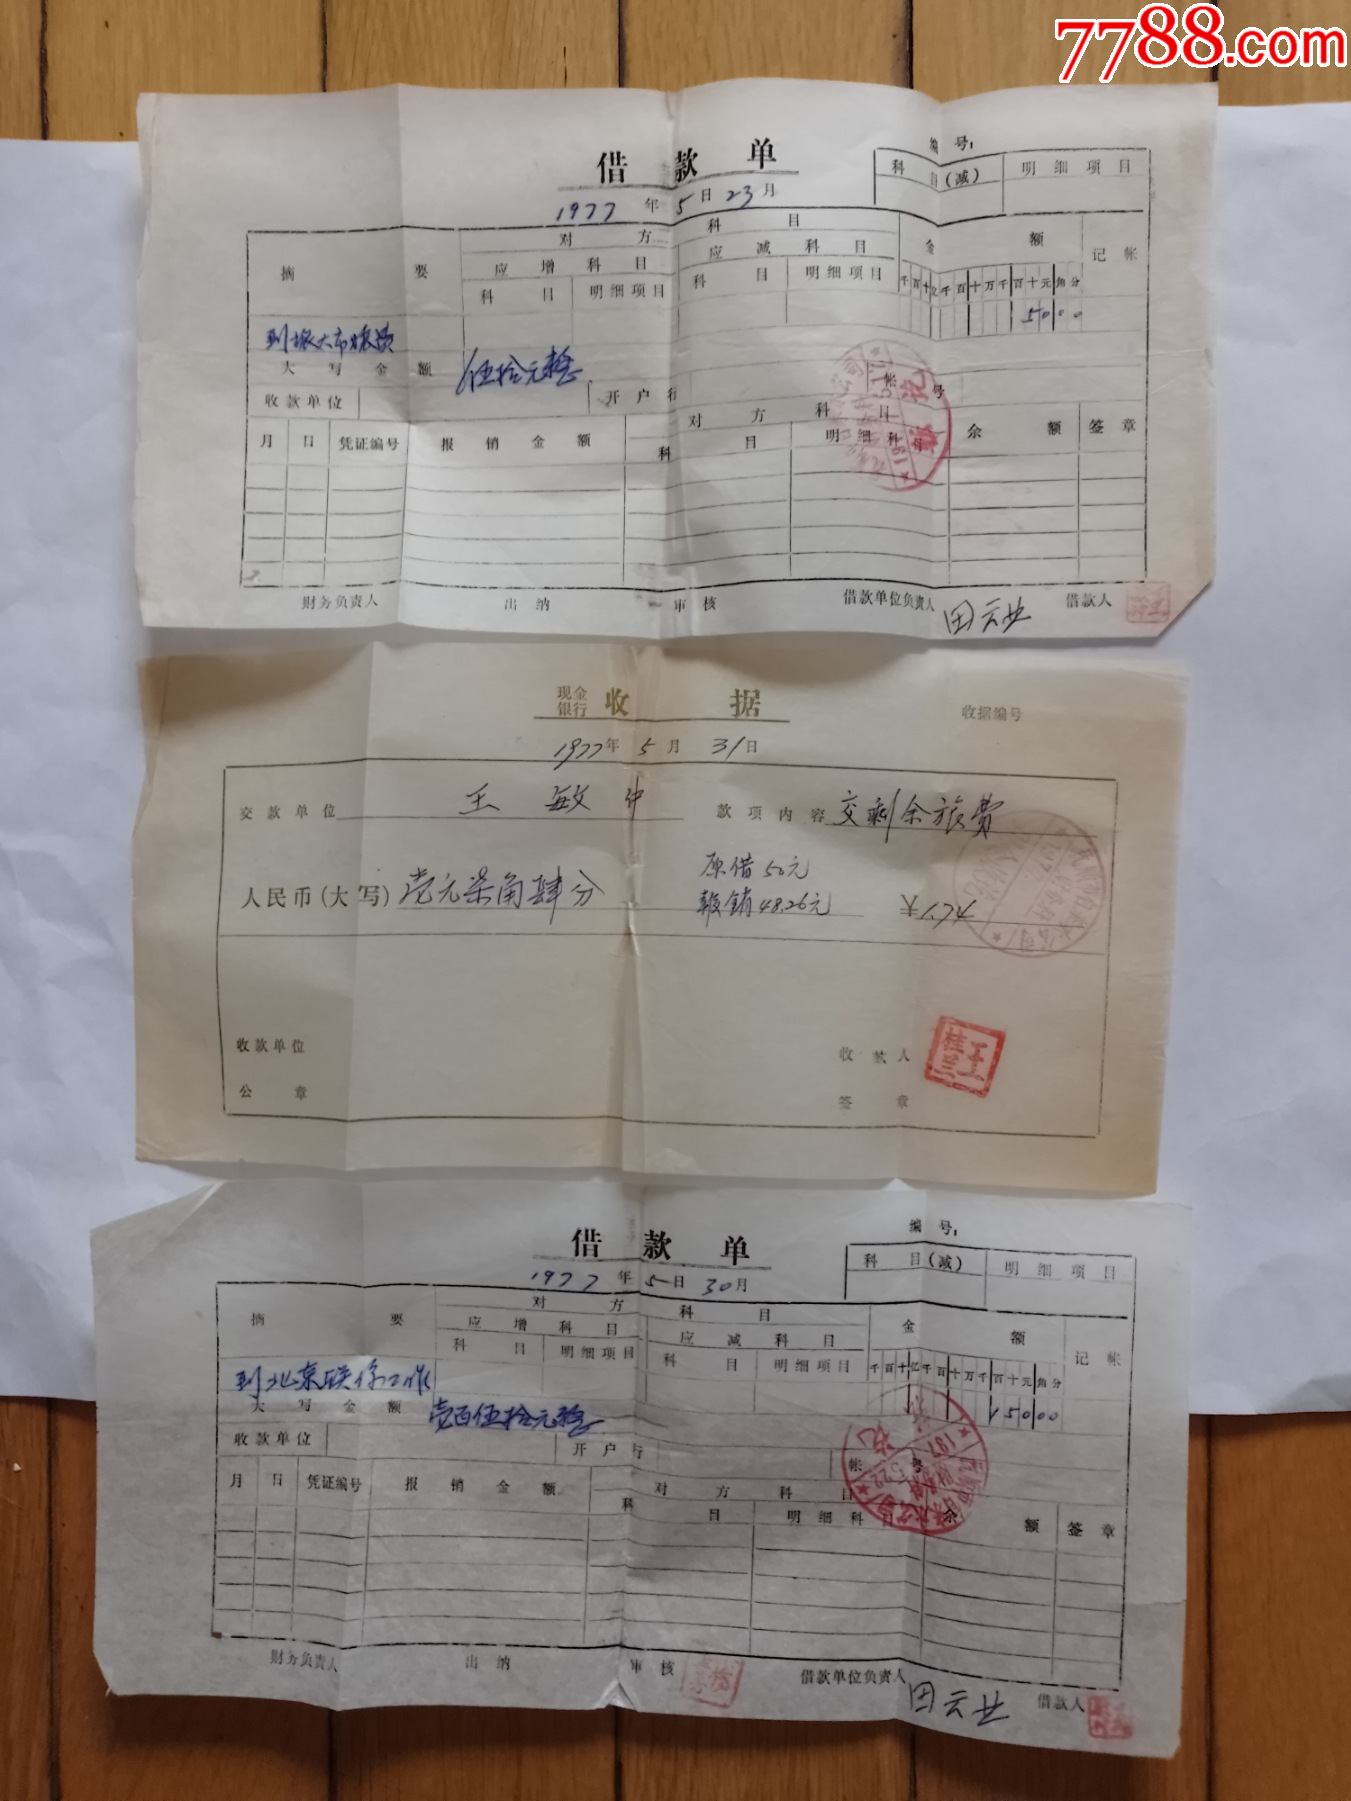 7788.com
借款单
编号:
科目(减) 明细项目
1977年5日23月
摘要 对方科目 金额 记帐
应增科目 应减科目
科目 明细项目 科目 明细项目 千百十亿千百十万千百十元角分
5000
大写金额 伍拾元整
收款单位 开户行 帐号
月 日 凭证编号 报销金额 对方科目 余额 签章
科目 明细科目
财务负责人 出纳 审核 借款单位负责人 田云业 借款人
现金
银行 收据 收据编号
1977年5月31日
交款单位 王敏 款项内容 交剩余旅费
原借50元
人民币(大写) 壹元柒角肆分 报销48.26元 ¥1.74
收款单位 收款人 王桂兰
公章 签章
借款单
编号:
科目(减) 明细项目
1977年5日30月
摘要 对方科目 金额 记帐
应增科目 应减科目
科目 明细项目 科目 明细项目 千百十亿千百十万千百十元角分
到北京联係工作 15000
大写金额 壹百伍拾元整
收款单位 开户行 帐号
月 日 凭证编号 报销金额 对方科目 余额 签章
科目 明细科目
财务负责人 出纳 审核 借款单位负责人 田云业 借款人